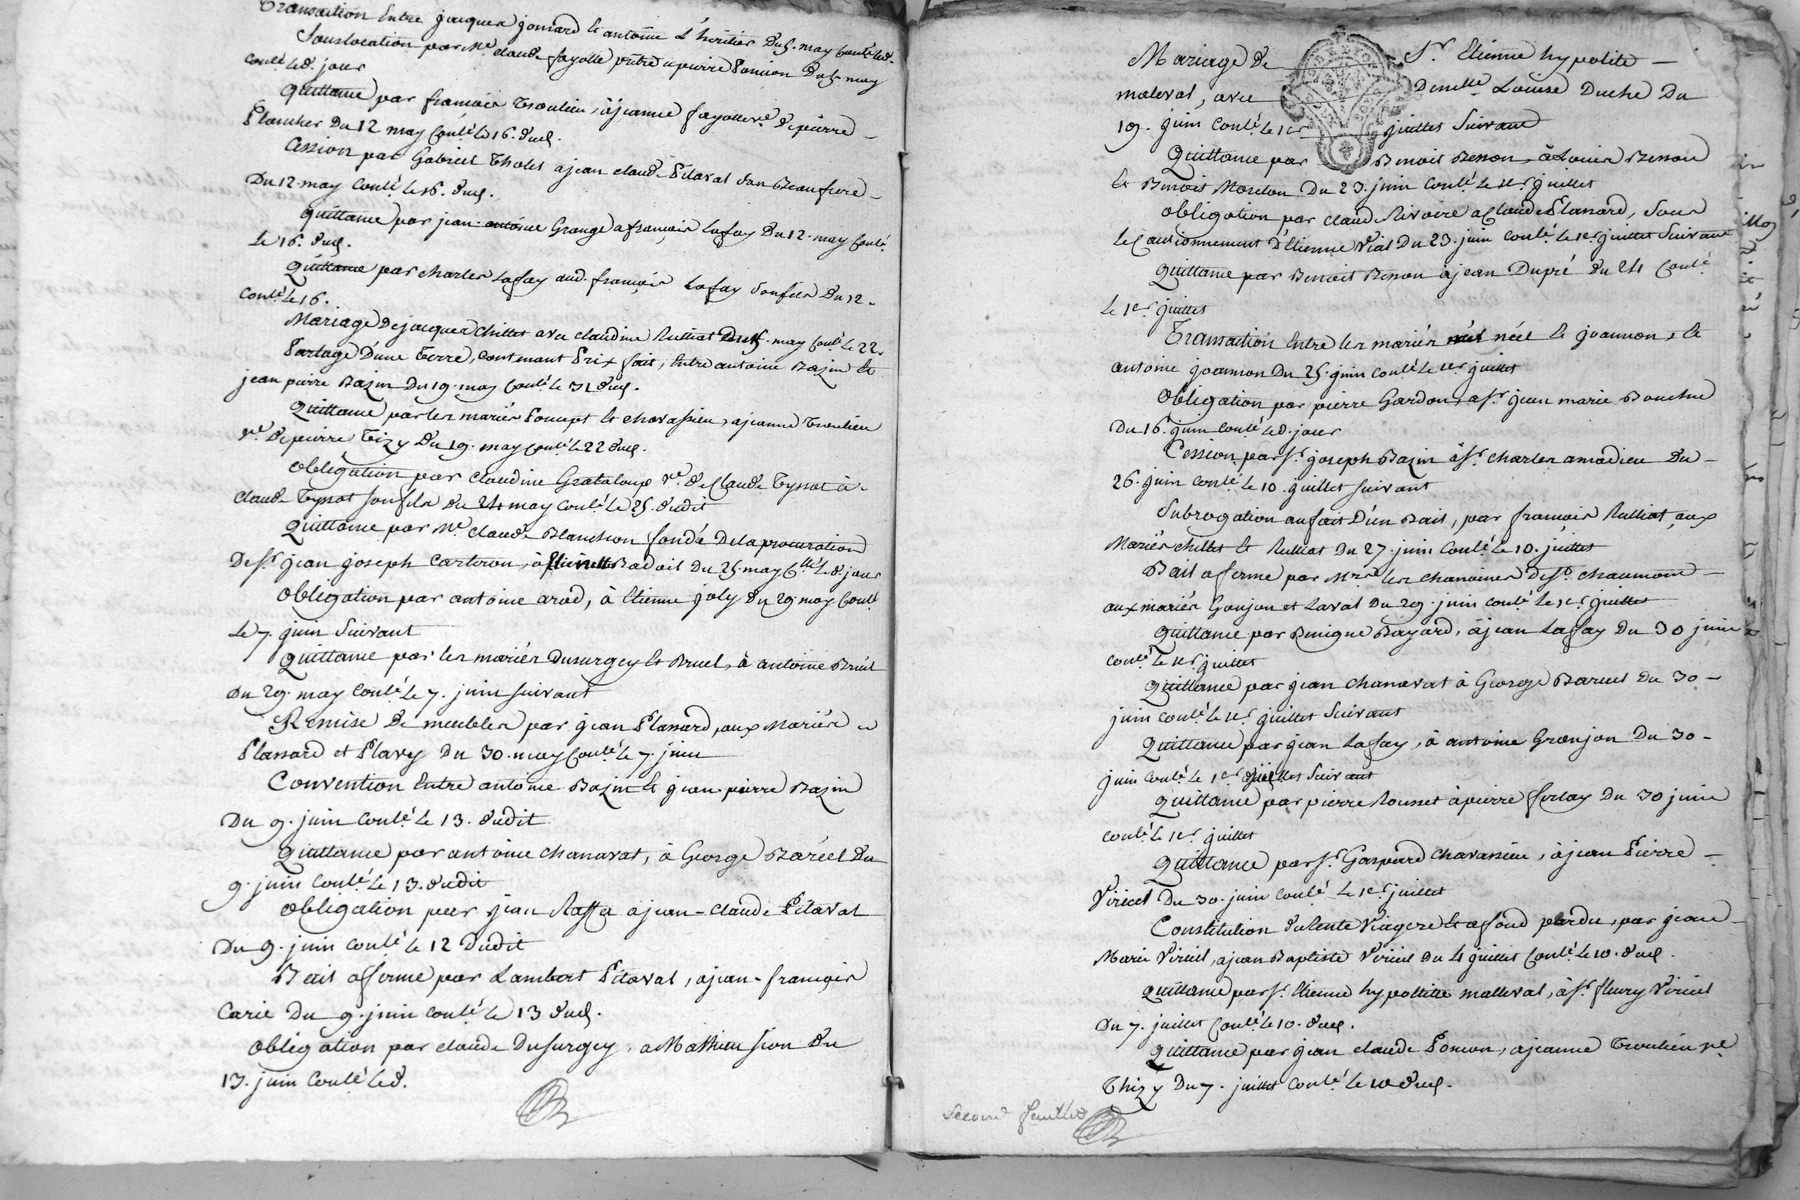 Transaction Entre jacques jomard & antoine L'heritier Du 5. may Conlé led.
Souslocation par Me claude fayolle prêtre a pierre Poncion Du 5. may
Conlé led. jour
Quittance par françois Croulieu, à jeanne fayolle ve De pierre
Plancher Du 12 may Conlé le 16. dud.
Cession par Gabriel Tholet a jean claude Pitaval son Beaufrere
Du 12. may Conlé le 16. dud.
quittance par jean antoine Grange a françois Lafay Du 12. may Conlé
le 16. dud.
Quittance par charles Lafay aud. françois Lafay son fils Du 12.
Conlé le 16.
Mariage De jacques chillet avec claudine Rulliat may Conlé le 22.
Partage D'une Terre, contenant Prix fait, Entre antoine Bazin &
jean pierre Bazin Du 19. may Conlé le 31 dud.
Quittance par les mariés Poncept & chavassieu, a jeanne Croulieu
ve De pierre Tizy Du 19. may Conlé le 22 dud.
Obligation par claudine Grataloup ve de Claude Tyssot à
Claude Tyssot son fils du 24 may Conlé le 25. dudit
Quittance par Me Claude Blanchon fondé De la procuration
De sr. jean joseph Carteron, à Badoit Du 25. may Clé led. jour
Obligation par antoine arod, à Etienne joly Du 29. may Conlé
le 7. juin Suivant
Quittance par les mariés Dusurgey & Bruel, à antoine Bruel
Du 29. may Conlé le 7. juin suivant
Remise De meubles par jean Plassard, aux Mariés
Plassard et Flavy Du 30. may Conlé le 7. juin
Convention Entre antoine Bazin & jean pierre Bazin
Du 9. juin Conlé le 13. dudit
Quittance par antoine chanavat, à George Bareel Du
9. juin Conlé le 13. dudit
Obligation par jean Raffa a jean-claude Pitaval
Du 9. juin Conlé le 12 Dudit
Bail a ferme par Lambert Pitaval, a jean-françois
Carie Du 9. juin Conlé le 13 dud.
Obligation par claude Dusurgey, a Mathieu sion Du
13. juin Conlé led.
Mariage De Sr. Etienne hypolite
maleval, avec Demelle Louise Duché Du
19. juin Conlé le 1er juillet Suivant
Quittance par Benoit Besson, à Louis Besson
& Benoit Moreton Du 23. juin Conlé le 1er juillet
Obligation par claude Rivoire a Claude Plassard, sous
le Cautionnement D'Etienne Vial Du 23. juin Conlé le 1er juillet Suivant
Quittance par Benoit Besson à jean Dupré du 24 Conlé
le 1er juillet
Transaction Entre les mariés néel & joannon, &
antoine joannon Du 25. juin Conlé le 1er juillet
Obligation par pierre Gardon, a sr. jean marie Bouchu
Du 16. juin Conlé led. jour
Cession par sr. joseph Bazin à sr. charles amadieu Du
26. juin Conlé le 10. juillet suivant
Subrogation au fait D'un Bail, par françois Rulliat, aux
Mariés chillet & Rulliat Du 27. juin Conlé le 10. juillet
Bail a ferme par Mrs. les chanoines De St. chaumont
aux mariés Goujon et Laval Du 29. juin Conlé le 1er juillet
Quittance par Benigne Bayard, à jean Lafay Du 30 juin
Conlé le 1er juillet
Quittance par jean chanavat à George Bareel Du 30
juin Conlé le 1er juillet Suivant
Quittance par jean Lafay, à antoine Granjon Du 30
juin Conlé le 1er juillet Suivant
Quittance par pierre Rousset à pierre ferlay Du 30 juin
Conlé le 1er juillet
Quittance par sr. Gaspard chavassieu, à jean Pierre
Viricel Du 30. juin Conlé le 1er juillet
Constitution de Rente Viagere & a fond perdu, par jean
Marie Viricel, a jean Baptiste Viricel Du 4 juillet Conlé le 10. dud.
Quittance par sr. Etienne hypollitte malleval, à sr. fleury Viricel
Du 7. juillet Conlé le 10. dud.
Quittance par jean claude Poncion, a jeanne Croulieu ve
Thizy Du 7. juillet Conlé le 10 dud.
Second feuillet